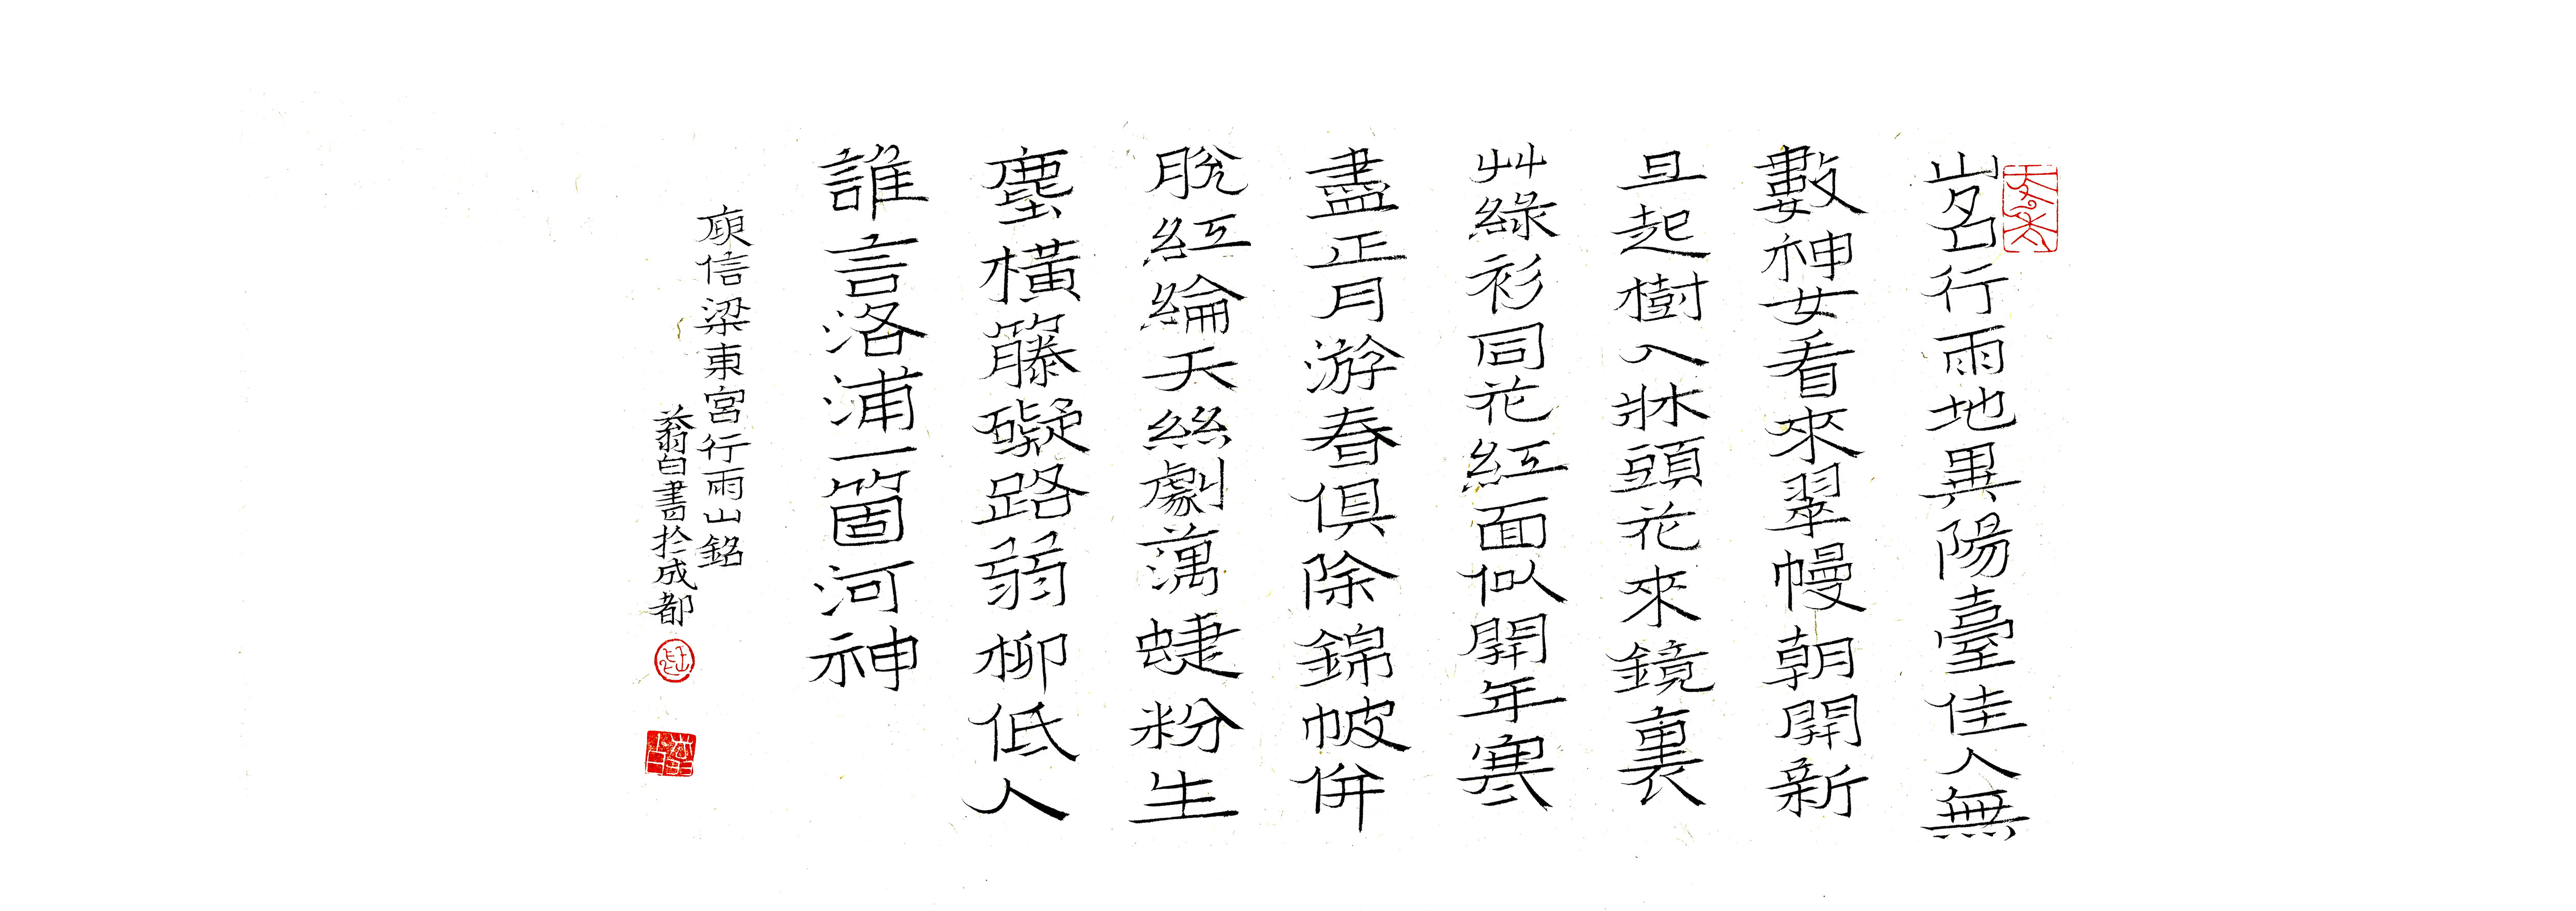 山名行雨地異陽臺佳人無
數神女看來翠幔朝開新
旦起樹入牀頭花來鏡裏
艸綠衫同花紅面似開年寒
盡正月游春俱除錦帔併
脫紅綸天絲劇藕蜨粉生
塵橫籐礙路弱柳低人
誰言洛浦一箇河神
庾信梁東宮行雨山銘
蓊白書於成都